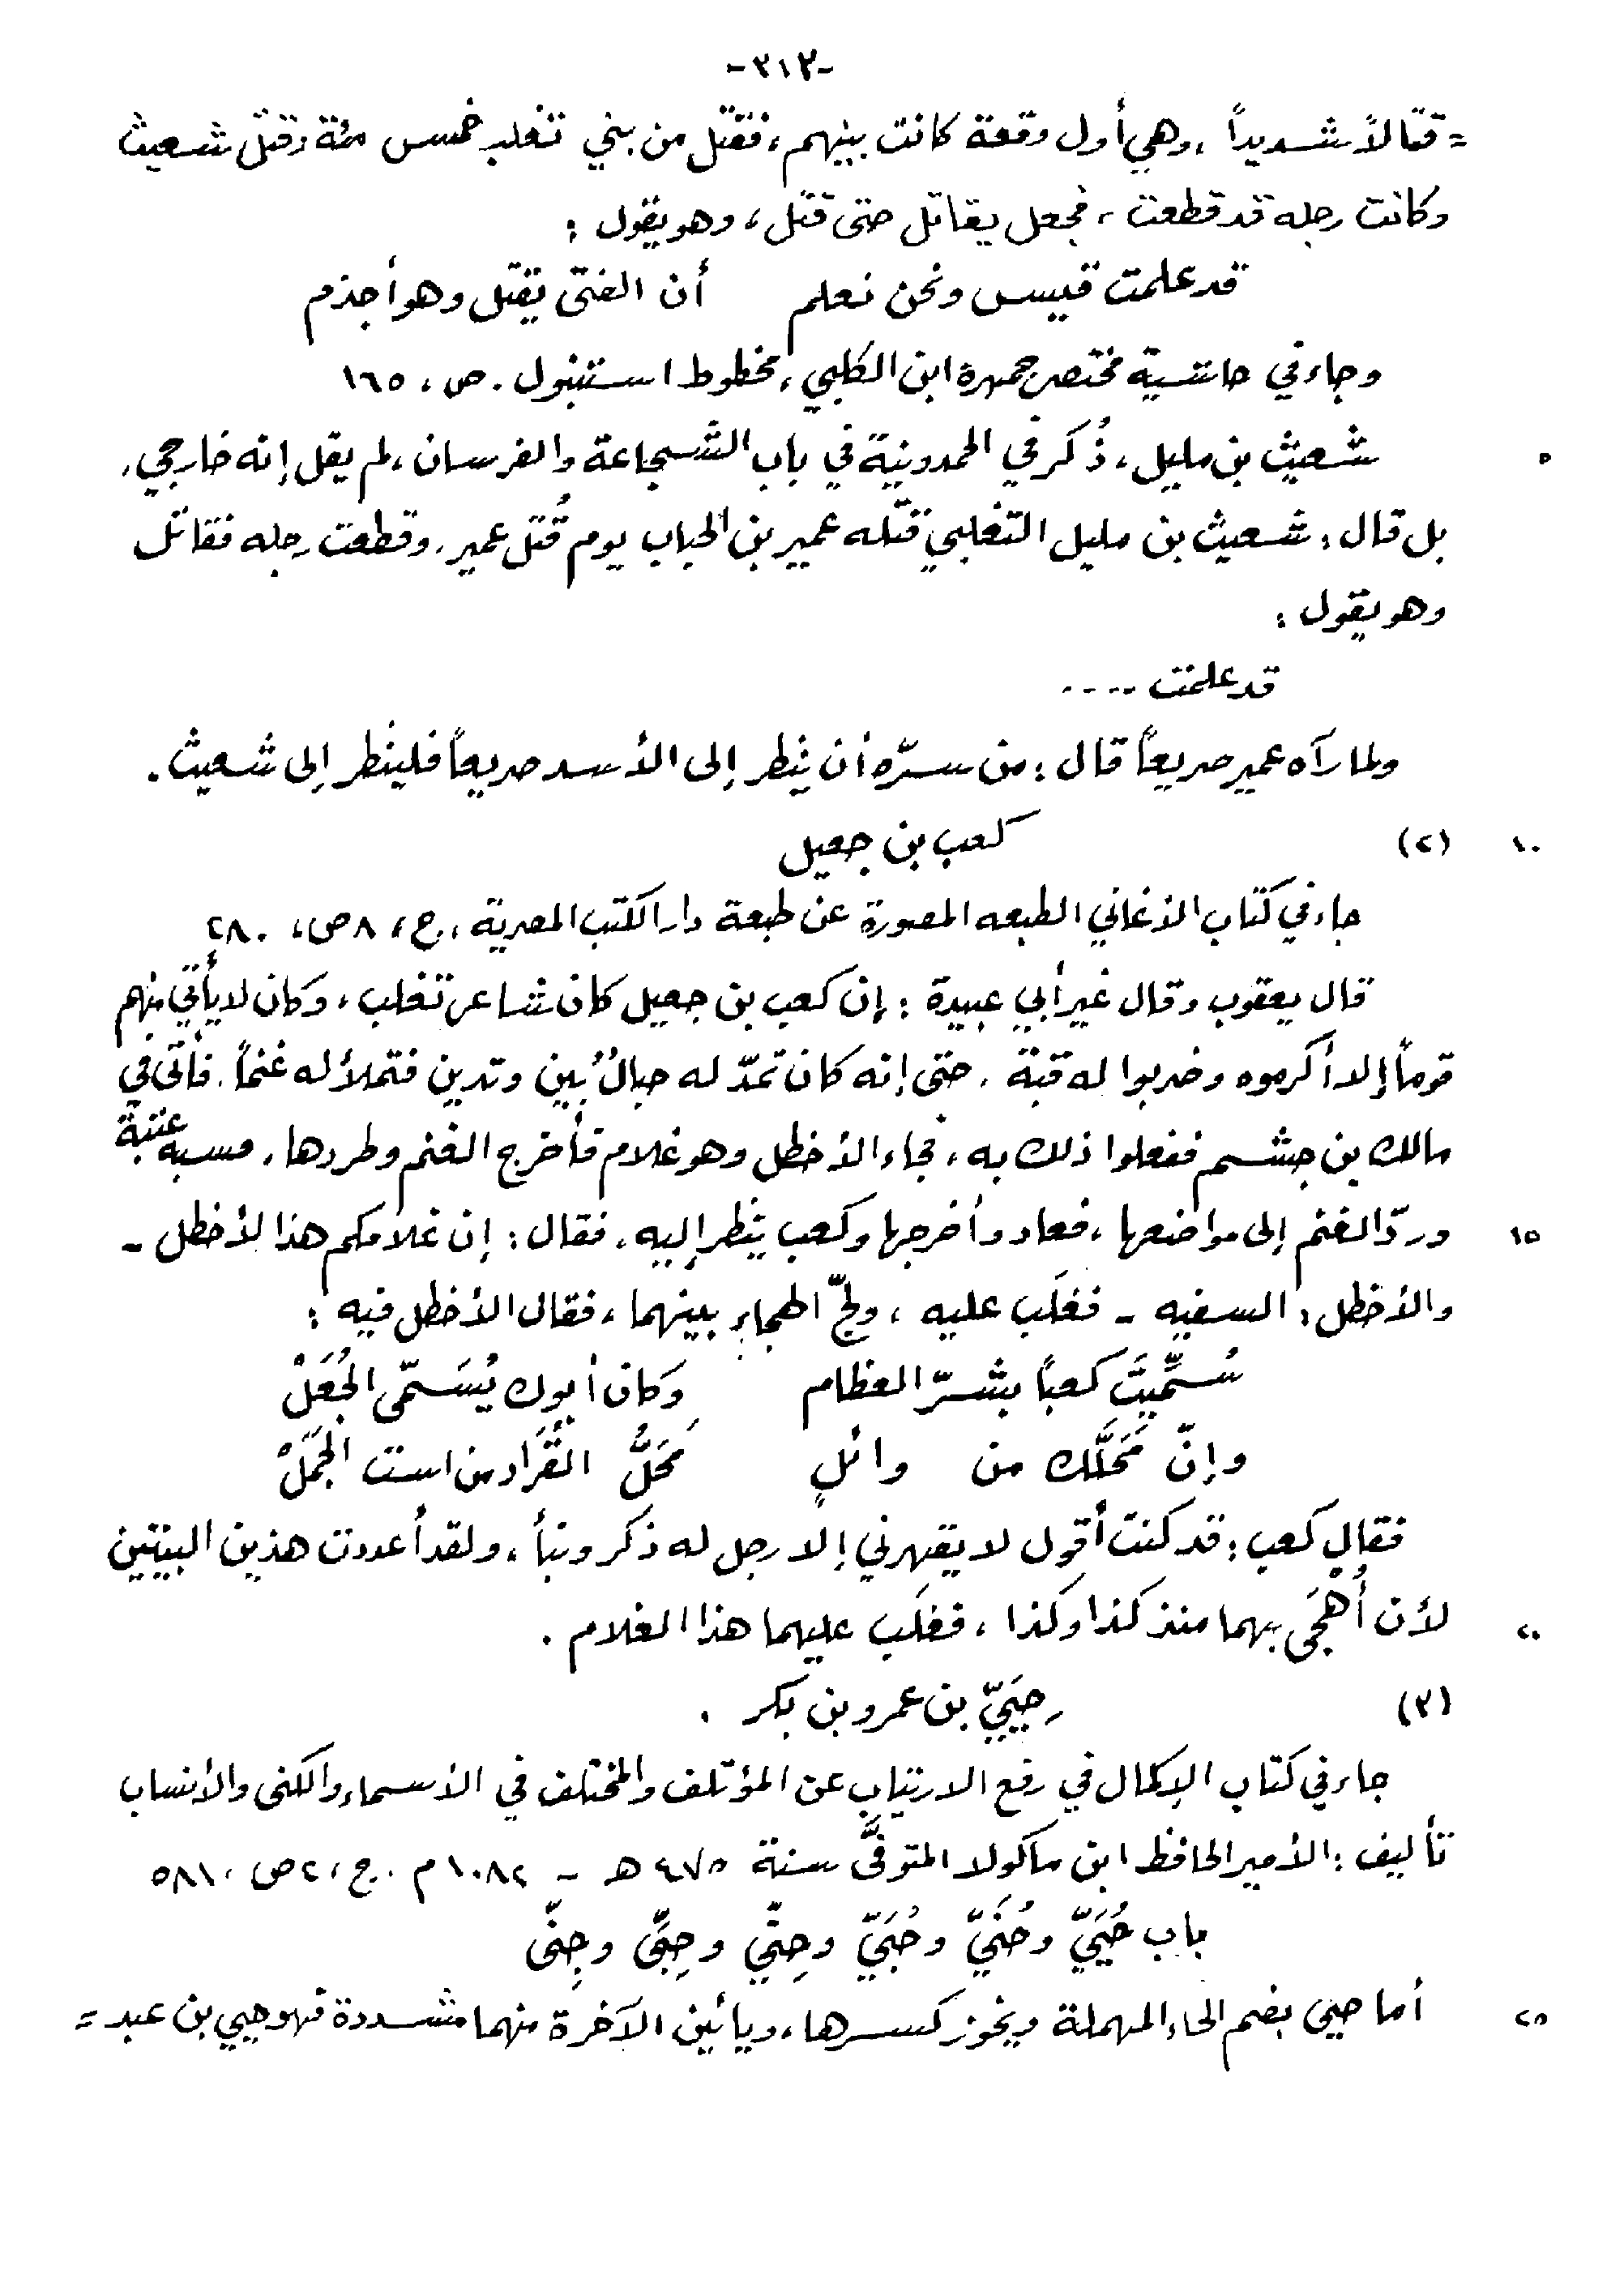 -٣١٣-
= قتالاً شديداً ، وهي أول وقعة كانت بينهم ، فقتل من بني تغلب خمس مئة وقتل شعيث
وكانت رجله قد قطعت ، فجعل يقاتل حتى قتل ، وهو يقول :
قد علمت قيس ونحن نعلم أن الفتى يقتل وهو أجذم
وجاء في حاشية مختصر جمهرة ابن الكلبي ، مخطوط استنبول . ص ، ١٦٥
٥ شعيث بن مليل ، ذُكر في الحمدونية في باب الشجاعة والفرسان ، لم يقل إنه خارجي ،
بل قال : شعيث بن مليل التغلبي قتله عمير بن الحباب يوم قُتل عمير ، وقطعت رجله فقاتل
وهو يقول :
قد علمت ....
ولما رآه عمير صريعاً قال : من سرّه أن ينظر إلى الأسد صريعاً فلينظر إلى شعيث .
١٠ (٢) كعب بن جعيل
جاء في كتاب الأغاني الطبعه المصورة عن طبعة دار الكتب المصرية ، ج ، ٨ ص ، ٢٨٠
قال يعقوب وقال غير أبي عبيدة : إن كعب بن جعيل كان شاعر تغلب ، وكان لا يأتي منهم
قوماً إلا أكرموه وضربوا له قبّة ، حتى إنه كان تمدّ له حبالٌ بين وتدين فتملأ له غنماً ، فأتى في
مالك بن جشم ففعلوا ذلك به ، فجاء الأخطل وهو غلام فأخرج الغنم وطردها ، فسبه عتبة
١٥ وردّ الغنم إلى مواضعها ، فعاد وأخرجها وكعب ينظر إليه ، فقال : إن غلامكم هذا لأخطل -
والأخطل : السفيه - فغلَب عليه ، ولجّ الهجاء بينهما ، فقال الأخطل فيه :
سُمِّيتَ كعباً بشرّ العظام وكان أبوك يُسَمّى الجُعَلْ
وإنّ مَحَلَّك من وائلٍ مَحَلُّ القُرَاد من است الجَمَلْ
فقال كعب : قد كنت أقول لا يقهرني إلا رجل له ذكر ونبأ ، ولقد أعددت هذين البيتين
٢٠ لأن أُهجَى بهما منذ كذا وكذا ، فغلَب عليهما هذا الغلام .
(٣) حِيَيّ بن عمرو بن بكر .
جاء في كتاب الإكمال في رفع الارتياب عن المؤتلف والمختلف في الأسماء والكنى والأنساب
تأليف : الأمير الحافظ ابن ماكولا المتوفَّى سنة ٤٧٥ هـ - ١٠٨٢ م . ج ، ٢ ص ، ٥٨١
باب حُيَيّ وحُنَيّ وحُبَيّ وحِتّي وحِبَّى وحِنّى
٢٥ أما حيي بضم الحاء المهملة ويجوز كسرها ، وياءين الآخرة منهما مشددة فهو حيي بن عبد =